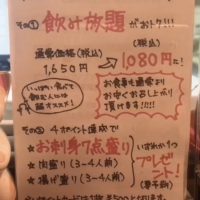 その① 飲み放題 がおトク!!!
通常価格(税込)
1,650円 → (税込) 1,080円に!
いっぱい食べて
飲む人には
超オススメ!
お食事も通常より
お安くお召し上がり
頂けます!!!
その② 4ポイント達成で
☆お刺身7点盛り
☆肉盛り(3~4人前)
☆揚げ盛り(3~4人前)
いずれか1つ
プレゼント!
(要予約)